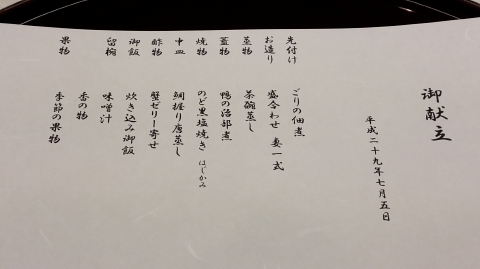 御献立
平成二十九年七月五日
先付け　ごりの佃煮
お造り　盛合わせ　妻一式
蒸物　茶碗蒸し
蓋物　鴨の治部煮
焼物　のど黒塩焼き　はじかみ
中皿　鯛握り唐蒸し
酢物　蟹ゼリー寄せ
御飯　炊き込み御飯
留椀　味噌汁
香の物
果物　季節の果物